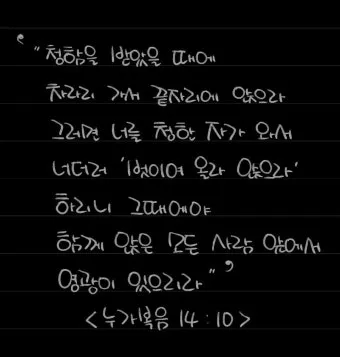 ‘“청함을 받았을 때에
차라리 가서 끝자리에 앉으라
그러면 너를 청한 자가 와서
너더러 '벗이여 올라 앉으라'
하리니 그때에야
함께 앉은 모든 사람 앞에서
영광이 있으리라”’
<누가복음 14:10>